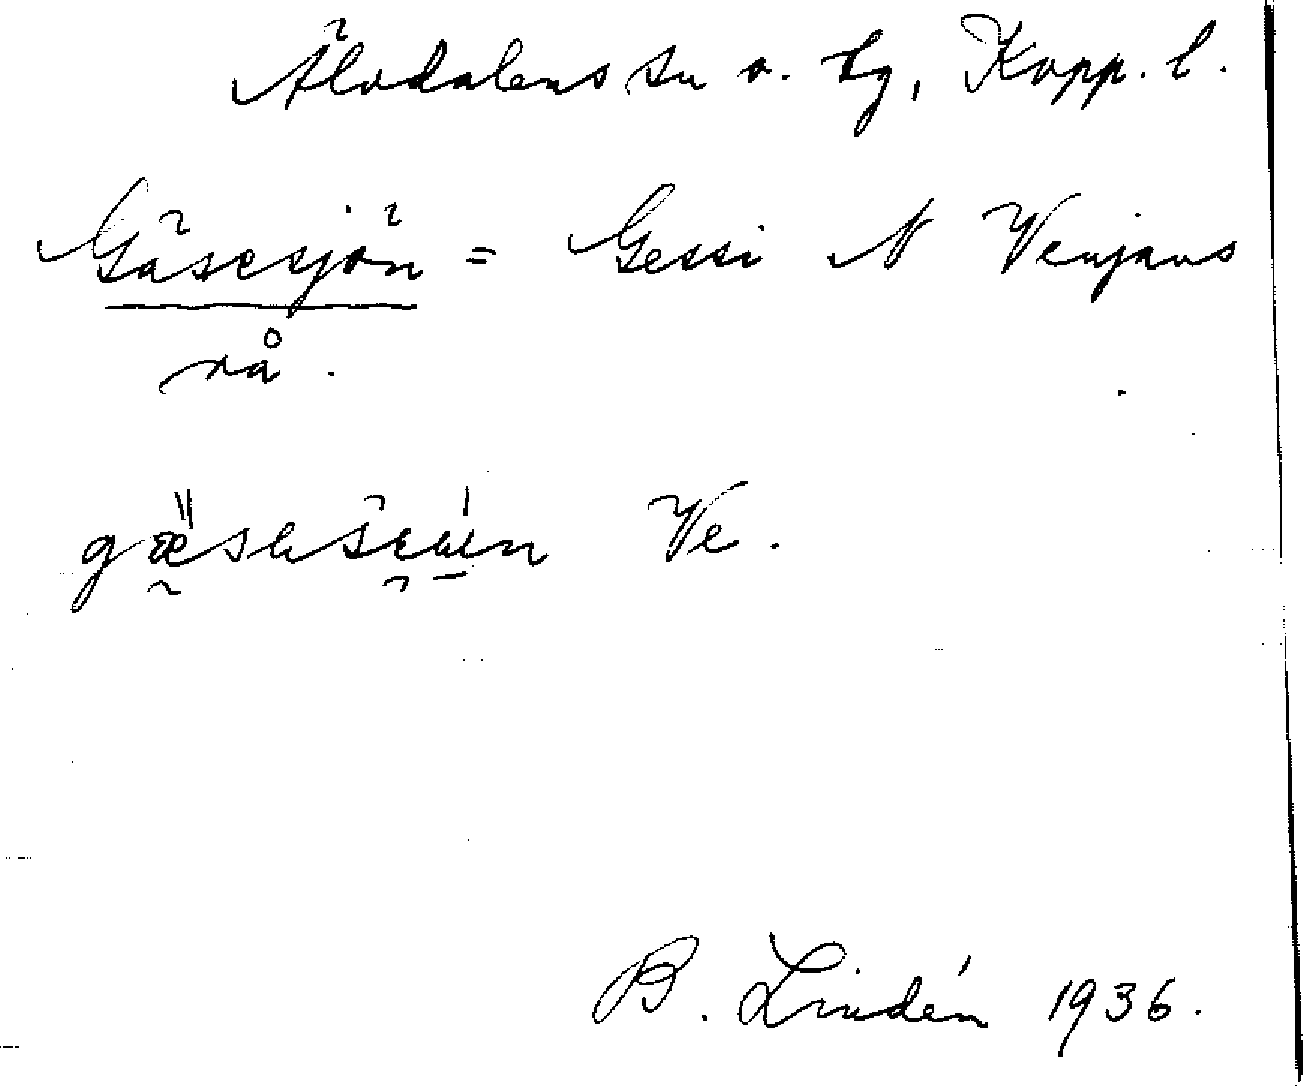 Älvdalens sn o. tg, Kopp. l.
Gäsesjön = Gessi N Venjans
rå.
Ve.
B. Lindén 1936.